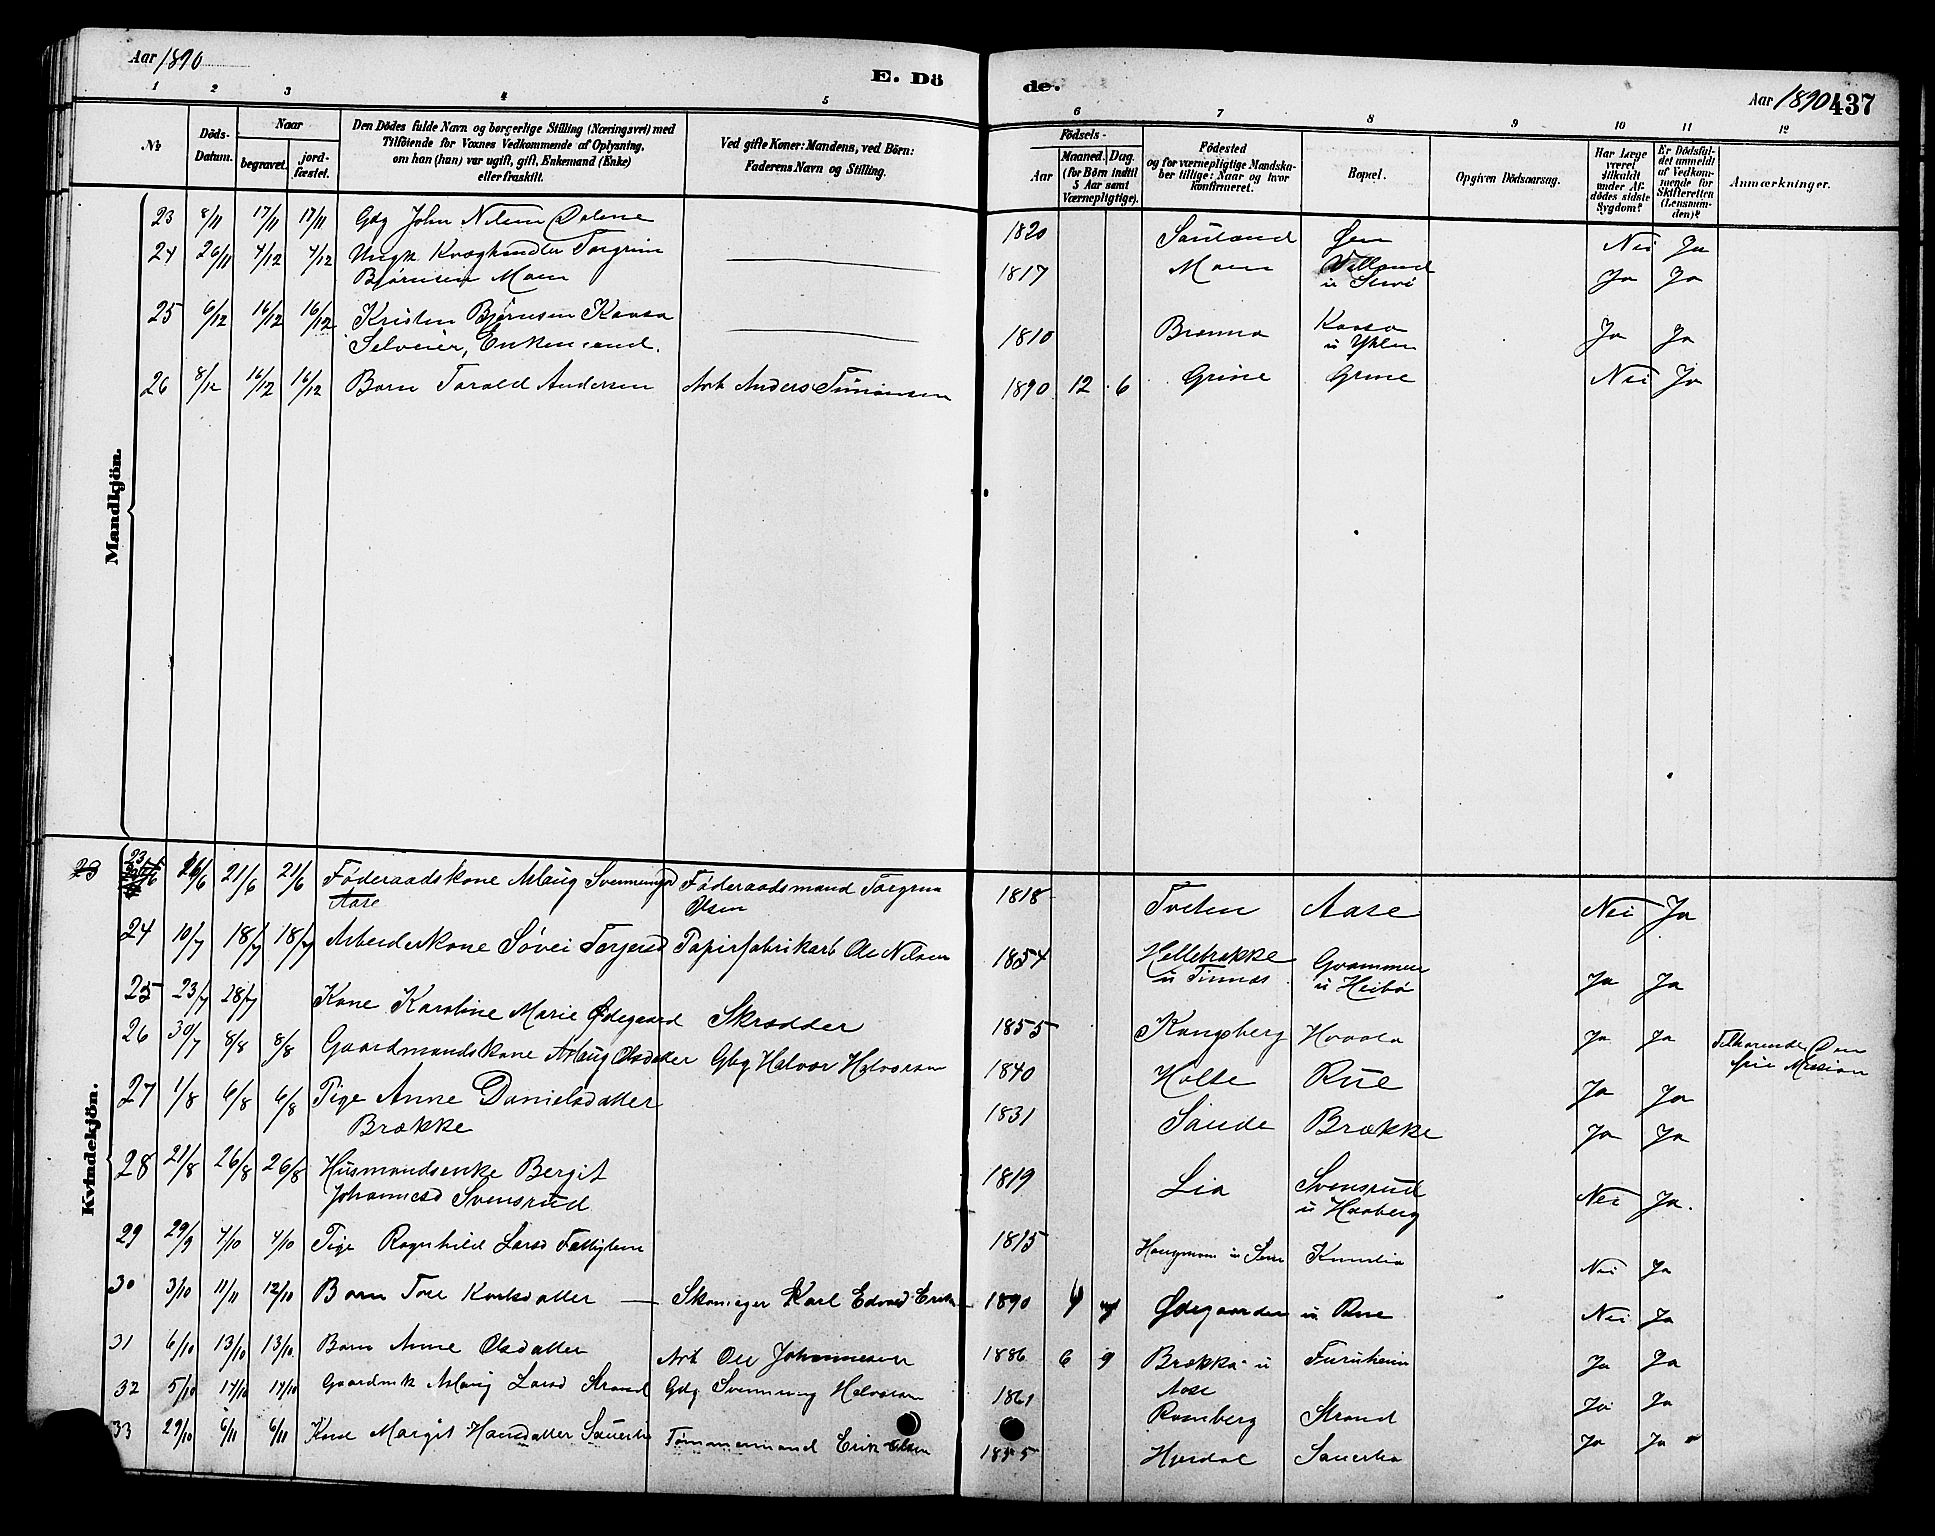 Aar 1890
E. Dö
de.
Aar 1890
437
1 2 3 4 5 6 7 8 9 10 11 12
№
Döds-Datum.
Naar
begravet.
jord-fæstet.
Den Dödes fulde Navn og borgerlige Stilling (Næringsvei) med
Tilföiende for Voxnes Vedkommende af Oplysning,
om han (hun) var ugift, gift, Enkemand (Enke)
eller fraskilt.
Ved gifte Koner: Mandens, ved Börn:
Faderens Navn og Stilling.
Födsels-
Aar
Maaned. Dag.
(for Börn indtil
5 Aar samt
Værnepligtige).
Födested
og for værnepligtige Mandska-
ber tillige: Naar og hvor
konfirmeret.
Bopæl.
Opgiven Dödsaarsag.
Har Læge
været
tilkaldt
under Af-
dödes sidste
Sygdom?
Er Dödsfal-
det anmeldt
af Vedkom-
mende for
Skifteretten
(Lensman-
den)?
Anmærkninger.
Mandkjön.
23 8/11 17/11 17/11 Gdg John Nilsen 1820 Sauland Nei Ja
24 26/11 4/12 4/12 Ungk Kvæghandler Torgrim
Bjørnsen Moen 1817 Moen Ja Ja
25 6/12 16/12 16/12 Kristen Bjørnsen Kaasa
Selveier, Enkemand. 1810 Kaasa Ja Ja
26 8/12 16/12 16/12 Barn Torald Andersen Arb Anders 1890 12 6 Grine Grine Nei Ja
Kvindekjön.
23 16/6 21/6 21/6 Føderaadskone Aslaug
Aase Føderaadsmand Torgrim
Olsen 1818 Tveten Aase Nei Ja
24 10/7 18/7 18/7 Arbeiderkone Søvei Terjersd Papirfabrikarb Ole Nilsen 1854 Hellebrække
u Tinnæs Grammen
u Heibø Ja Ja
25 23/7 28/7 Kone Karoline Marie Ødegaard Skrædder 1855 Kongsberg Ja Ja Tilhørende Den
frie Mission
26 30/7 8/8 8/8 Gaardmandskone Aslaug Olsdatter Gbg Halvor Halvorsen 1840 Holte Rue Ja Ja
27 1/8 6/8 6/8 Pige Anne Danielsdatter
Brække 1831 Sande Brække Ja Ja
28 21/8 26/8 26/8 Husmandsenke Bergit
Johannesd Svensrud 1819 Lia Svensrud
u Haaberg Nei Ja.
29 29/9 4/10 4/10 Pige Ragnhild Larsd 1815 Nei Ja
30 3/10 11/11 12/10 Barn Tore Karlsdatter Skomager Karl Edvard 1890 Ødegaarden u Rue Nei Ja
31 6/10 13/10 13/10 Barn Anne Olsdatter Arb Ole Johannesen 1886 6 9 Brække u
Aase Furuheim Ja Ja
32 5/10 14/10 14/10 Aslaug Larsd Strand Gdg Svenning Halvorsen 1861 Romberg Strand Ja Ja
33 29/10 6/11 6/11 Kone Margit Hansdatter Tømmermand Erik Olsen 1855 Ja Ja